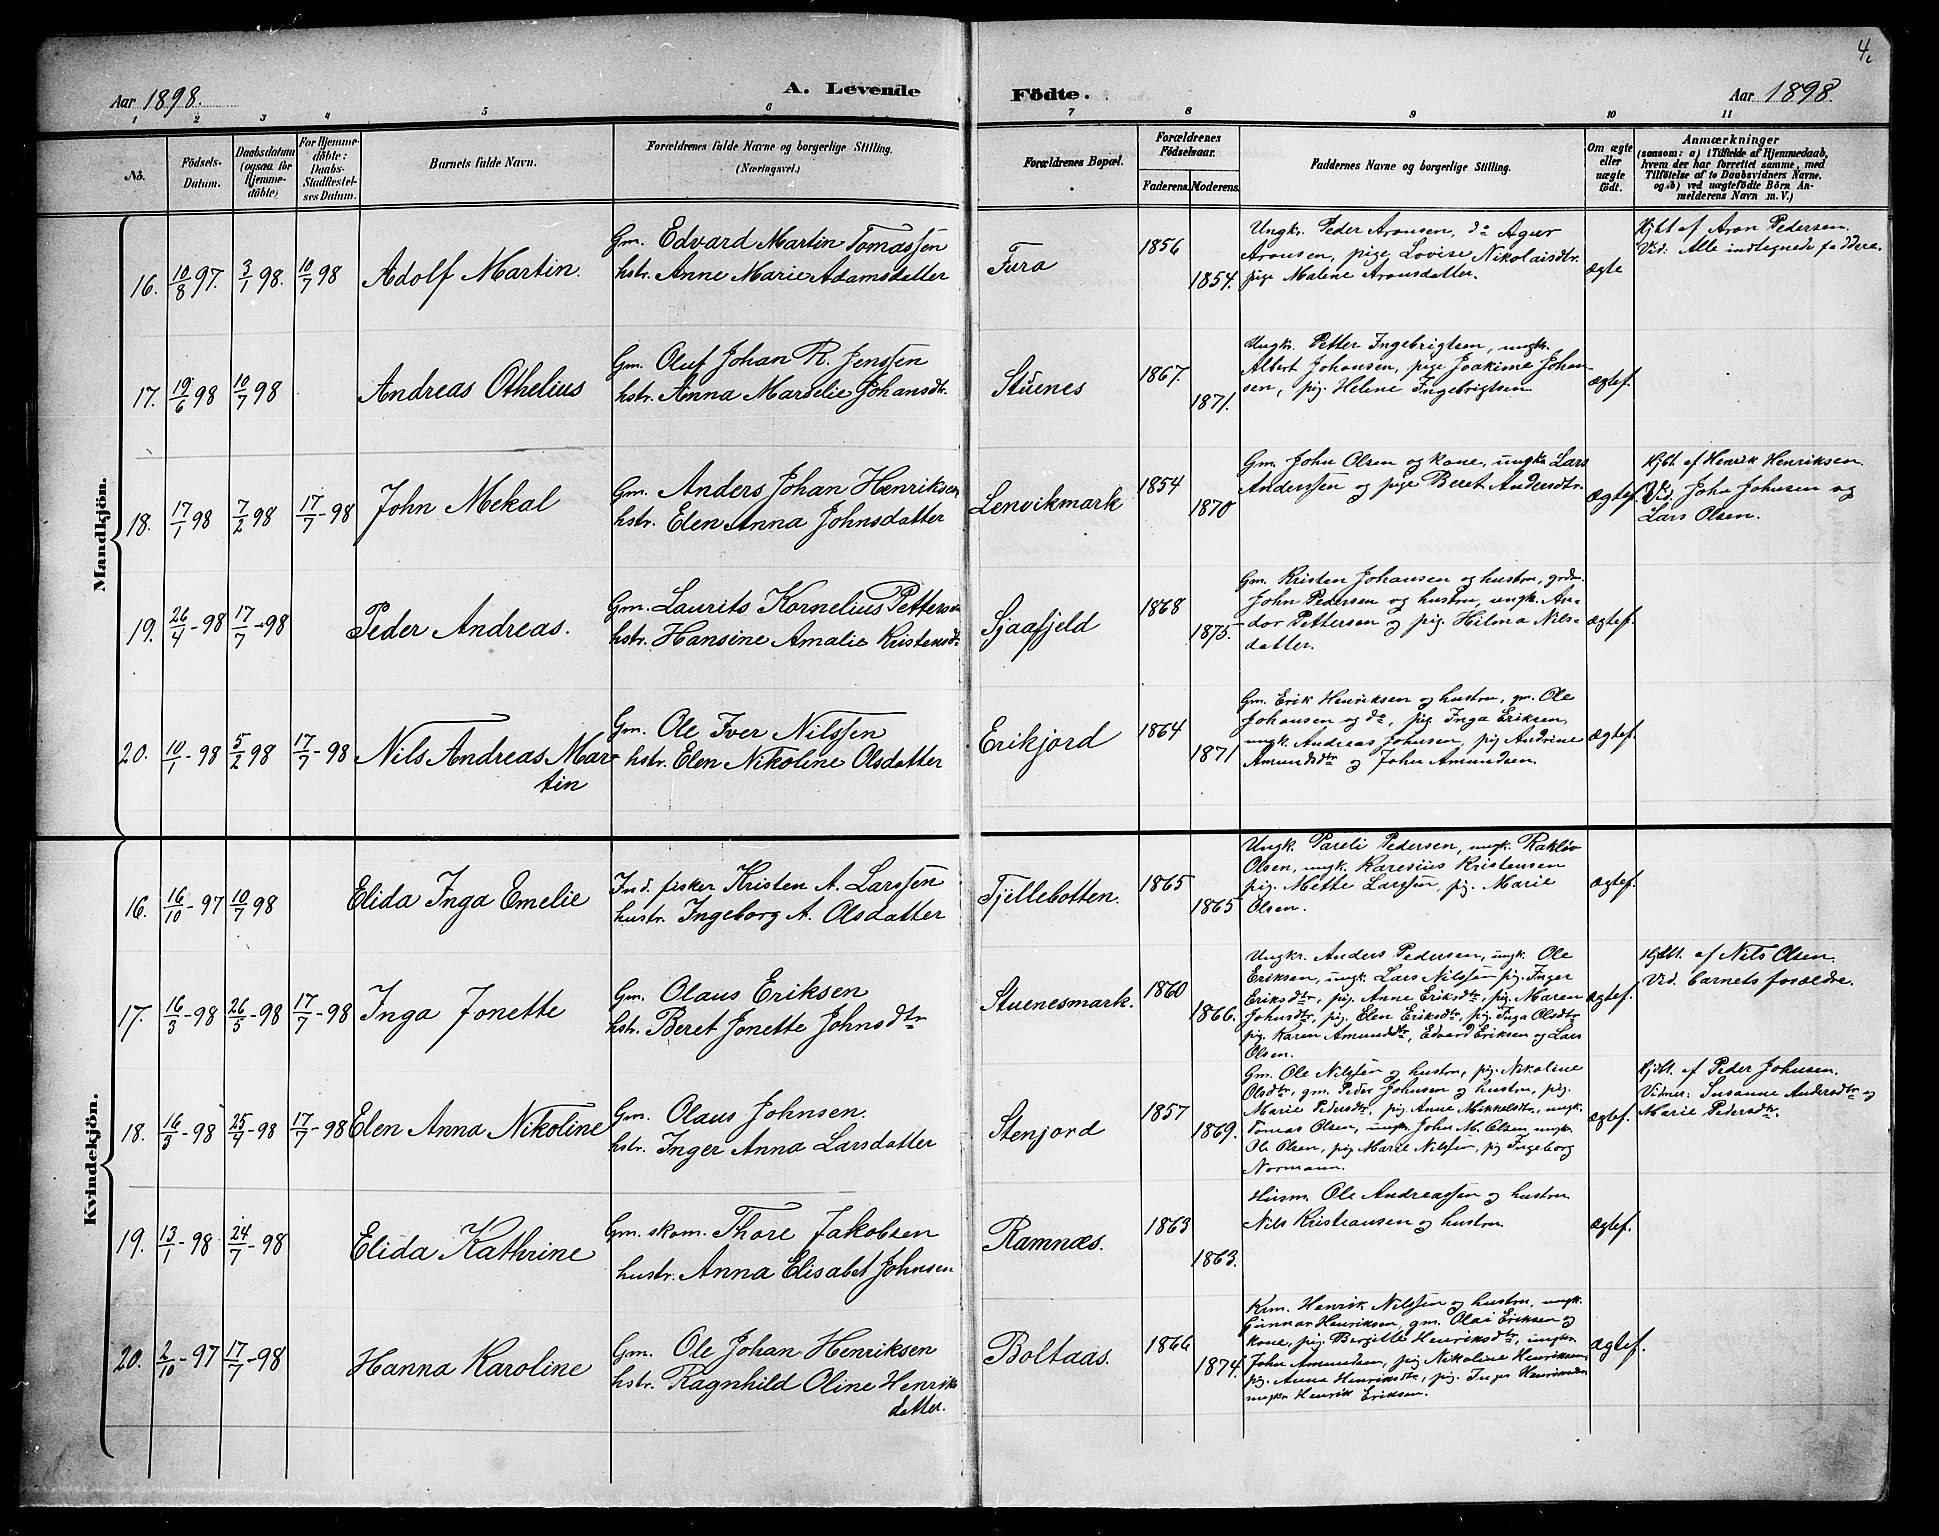 4
Aar 1898.
A. Levende
Födte.
Aar 1898.
1 2 3 4 5 6 7 8 9 10 11
No.
Födsels-Datum.
Daabsdatum (ogsaa for Hjemme-döbte)
For Hjemme-döbte: Daabs-Stadfæstel-ses Datum.
Barnets fulde Navn.
Forældrenes fulde Navne og borgerlige Stilling.
(Næringsvei.)
Forældrenes Bopæl.
Forældrenes Födselsaar.
Faderens. Moderens.
Faddernes Navne og borgerlige Stilling.
Om ægte eller uægte födt.
Anmærkninger
(saasom: a) i Tilfælde af Hjemmedaab,
hvem der har forrettet samme, med
Tilföielse af to Daabsvidners Navne.
og b) ved uægtefödte Börn An-
melderens Navn m. V.)
Mandkjön.
16. 10/8 97. 3/1 98. 10/7 98 Adolf Martin.
Gm. Edvard Martin Tomassen
hstr. Anne Marie Adamsdatter
Fura
1856
1854.
Ungkr. Peder Aronsen, do Agur
Aronsen, pige Lovise Nikolaisdtr.
pige Malene Aronsdatter.
ægte
Hjbt af Aron Pedersen.
Vid. Alle indtegnede faddere.
17. 19/6 98 10/7 98 Andreas Othelius
Gm. Oluf Johan R. Jenssen
hstr. Anna Marselie Johansdtr.
Stuenes
1867.
1871.
Ungkr. Petter Ingebrigtsen, ungk.
Albert Johansen, pige Joakime Johan-
sen, pig. Helene Ingebrigtsen
ægtef.
18. 17/1 98 7/2 98 17/7-98 John Mekal
Gm. Anders Johan Henriksen
hstr. Elen Anna Johnsdatter
Lenvikmark
1854
1870
Gm. John Olsen og kone, ungkr. Lars
Anderssen og pige Beret Andersdtr.
ægtef.
Hjbt af Henrik Henriksen.
Vid. John Johnsen og
Lars Olsen.
19. 26/4-98 17/7-98 Peder Andreas.
Gm. Laurits Kornelius Pettersen
hstr. Hansine Amalie Kristensdtr
Sjaafjeld
1868
1875.
Gm. Kristen Johansen og hustru, grdm.
John Pedersen og hustru, ungk. An-
dor Pettersen og pig. Hilma Nils-
datter.
ægtef.
20. 10/1-98 5/2 98 17/7-98 Nils Andreas Mar-
tin
Gm. Ole Iver Nilssen
hstr. Elen Nikoline Olsdatter
Erikjord
1864
1871
Gm. Erik Henriksen og hustru, gm. Ole
Johansen og do, pig. Inga Eriksen,
ungk. Andreas Johnsen, pig Andrine
Amundsdtr og John Amundsen.
ægtef.
Kvindekjön.
16. 16/10-97 10/7 98 Elida Inga Emelie
Ind. fisker Kristen A. Larssen
hustr. Ingeborg A. Olsdatter
Tjellebotten.
1865
1865
Ungk. Pareli Pedersen, ungk. Rakløv
Olsen, ungk. Karesius Kristensen
pig. Mette Larssen, pig. Marie
Olsen.
ægtef.
17. 16/3-98 26/5-98 17/7-98 Inga Jonette
Gm. Olaus Eriksen
hstr. Beret Jonette Johnsdtr
Stuenesmark.
1860
1866.
Ungkr. Anders Pedersen, ungk. Ole
Eriksen, ungk. Lars Nilssen, pig. Inger
Eriksdtr, pig. Anne Eriksdtr, pig. Maren
Johnsdtr, pig. Elen Eriksdtr, pig. Inga Olsdtr
pig. Karen Amundsdtr, Edvard Eriksen og Lars
Olsen.
ægtef.
Hjbt. af Nils Olsen.
Vid. barnets forældre.
18. 16/3-98 25/4-98 17/7-98 Elen Anna Nikoline
Gm. Olaus Johnsen.
hstr. Inger Anna Larsdatter
Stenjord
1857
1869.
Gm. Ole Nilssen og hustru, pig. Nikoline
Olsdtr, gm. Peder Johnsen og hustru, pig.
Marie Pedersdtr, pig. Anne Mekkelsdtr, ungk.
Tomas Olsen, ungk. John M. Olsen, ungk.
Ole Olsen, pig. Marie Nilssen, pig Ingeborg
Normann.
ægtef.
Hjbt. af Peder Johnsen.
Vidner: Susanne Andersdtr og
Marie Pedersdtr.
19. 13/1-98 24/7-98 Elida Kathrine
Gm. skom. Thore Jakobsen
hustr. Anna Elisabet Johnsen
Ramnæs.
1863
1863.
Husm. Ole Andreassen og hustru
Nils Kristiansen og hustru
ægtef.
20. 2/10-97 17/7-98 Hanna Karoline
Gm. Ole Johan Henriksen
hstr. Ragnhild Oline Henriks
datter.
Boltaas.
1866
1874.
Krm. Henrik Nilssen og hustru, ungk.
Gunnar Henriksen, gm. Olai Eriksen og
kone, pig. Bergitte Henriksdtr, ungkr.
John Amundsen, pig Nikoline Henriksen,
pig. Anna Henriksdtr, pig. Inger Henriksen
ungkr Henrik Eriksen.
ægtef.